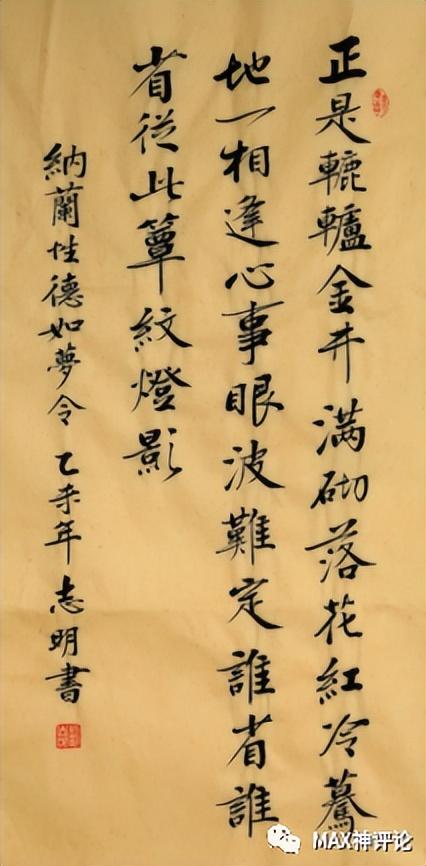 正是轆轤金井满砌落花紅冷驀
地一相逢心事眼波難定誰省誰
省從此簟紋燈影
納蘭性德如夢令 乙未年志明書
MAX神评论